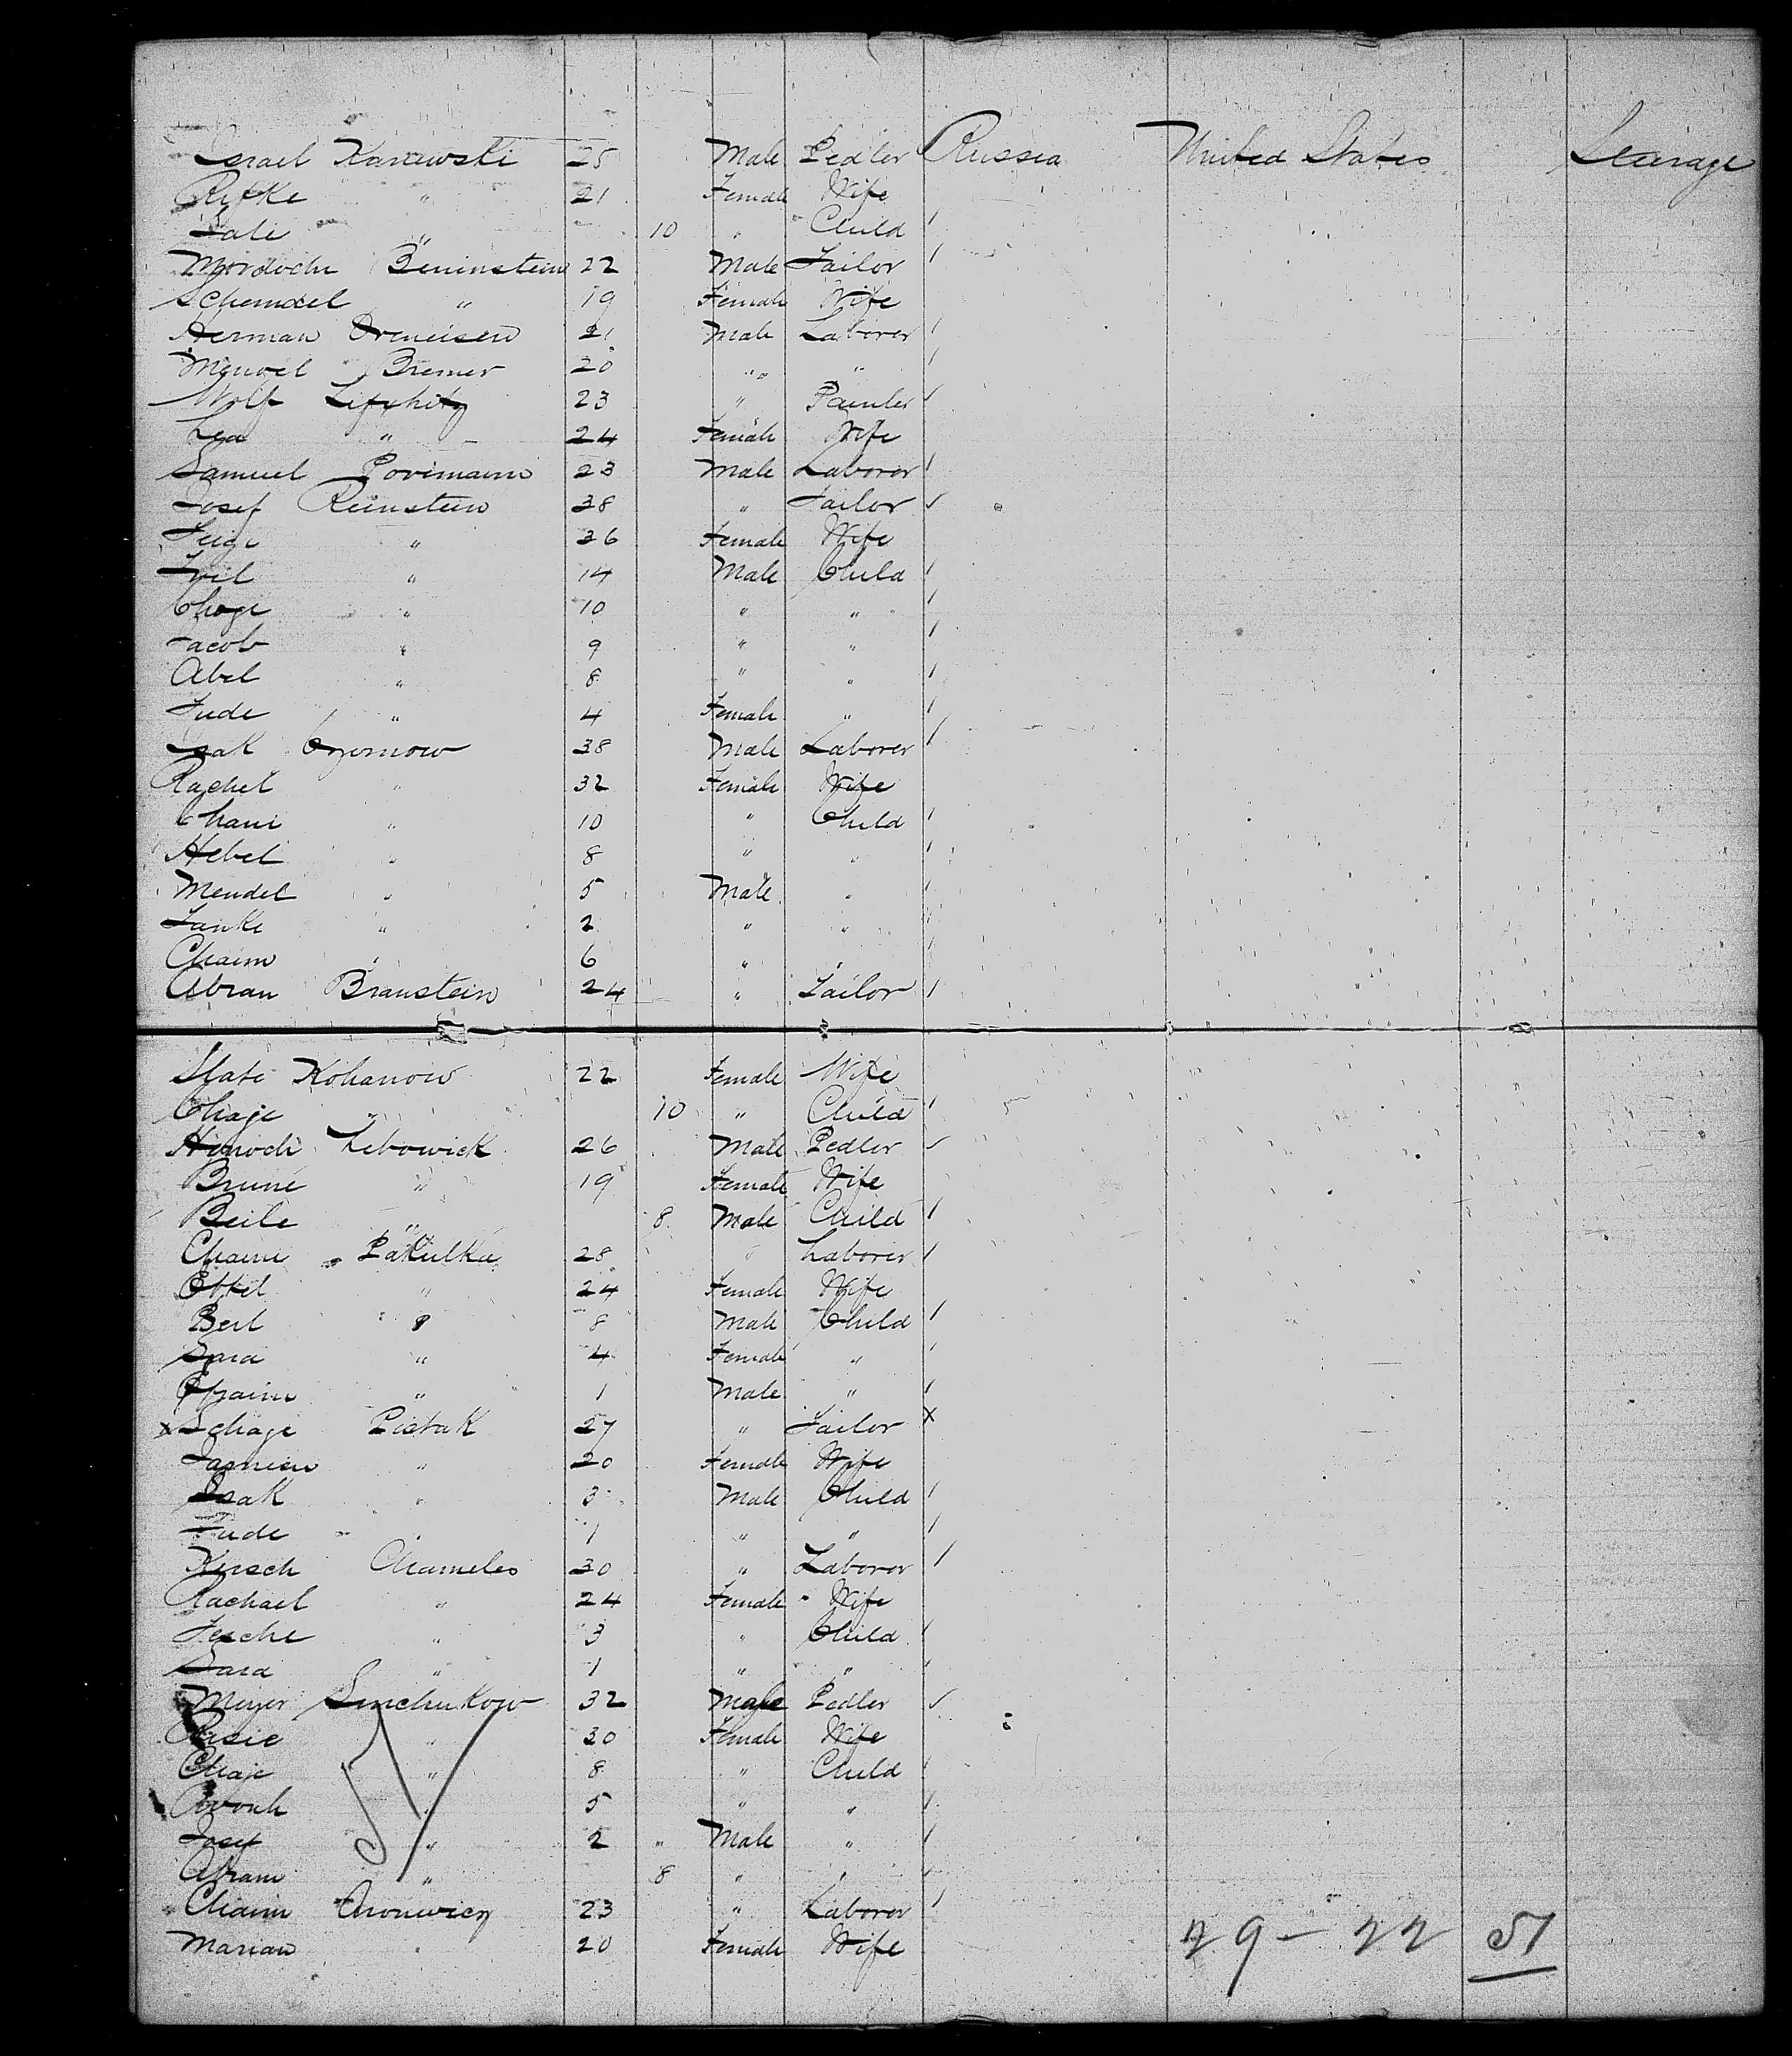 Israel Kanewski 25 Male Pedler Russia United States Steerage
Rifke " 21 Female Wife
Sali " 10 " Child
Mordoche Beninstein 22 Male Tailor
Schendel " 19 Female Wife
Herman Oreneisen 21 Male Laborer
Menoel Bremer 20 " "
Wolf Lifschitz 23 " Painter
Lea " 24 Female Wife
Samuel Povimann 23 Male Laborer
Josef Reinstein 38 " Tailor
Feige " 36 Female Wife
Ivil " 14 Male Child
Chage " 10 " "
Jacob " 9 " "
Abel " 8 " "
Jude " 4 Female "
Isak Czernow 38 Male Laborer
Rachel " 32 Female Wife
Chani " 10 " Child
Hebel " 8 " "
Mendel " 5 Male "
Janke " 2 " "
Chaim " 6 " "
Abran Branstein 24 " Tailor
Slate Kohanow 22 Female Wife
Chaje " 10 " Child
Lebowick 26 Male Pedler
Brune " 19 Female Wife
Beile " 8 Male Child
Chaim Pakulka 28 " Laborer
Ettel " 24 Female Wife
Berl " 8 Male Child
Sara " 4 Female "
Efraim " 1 Male "
x Schage Piatak 27 " Tailor x
" 20 Female Wife
Isak " 3 Male Child
Jude " 1 " "
Hirsch Chameles 30 " Laborer
Rachael " 24 Female Wife
Jesche " 3 " Child
Sara " 1 " "
Meyer Senchukow 32 Male Pedler
Rasie " 30 Female Wife
Chaje " 8 " Child
" 5 " "
Josef " 2 " Male "
Abram " 8 " "
Chaim Aronwicz 23 " Laborer
Marian " 20 Female Wife
29 - 22 51